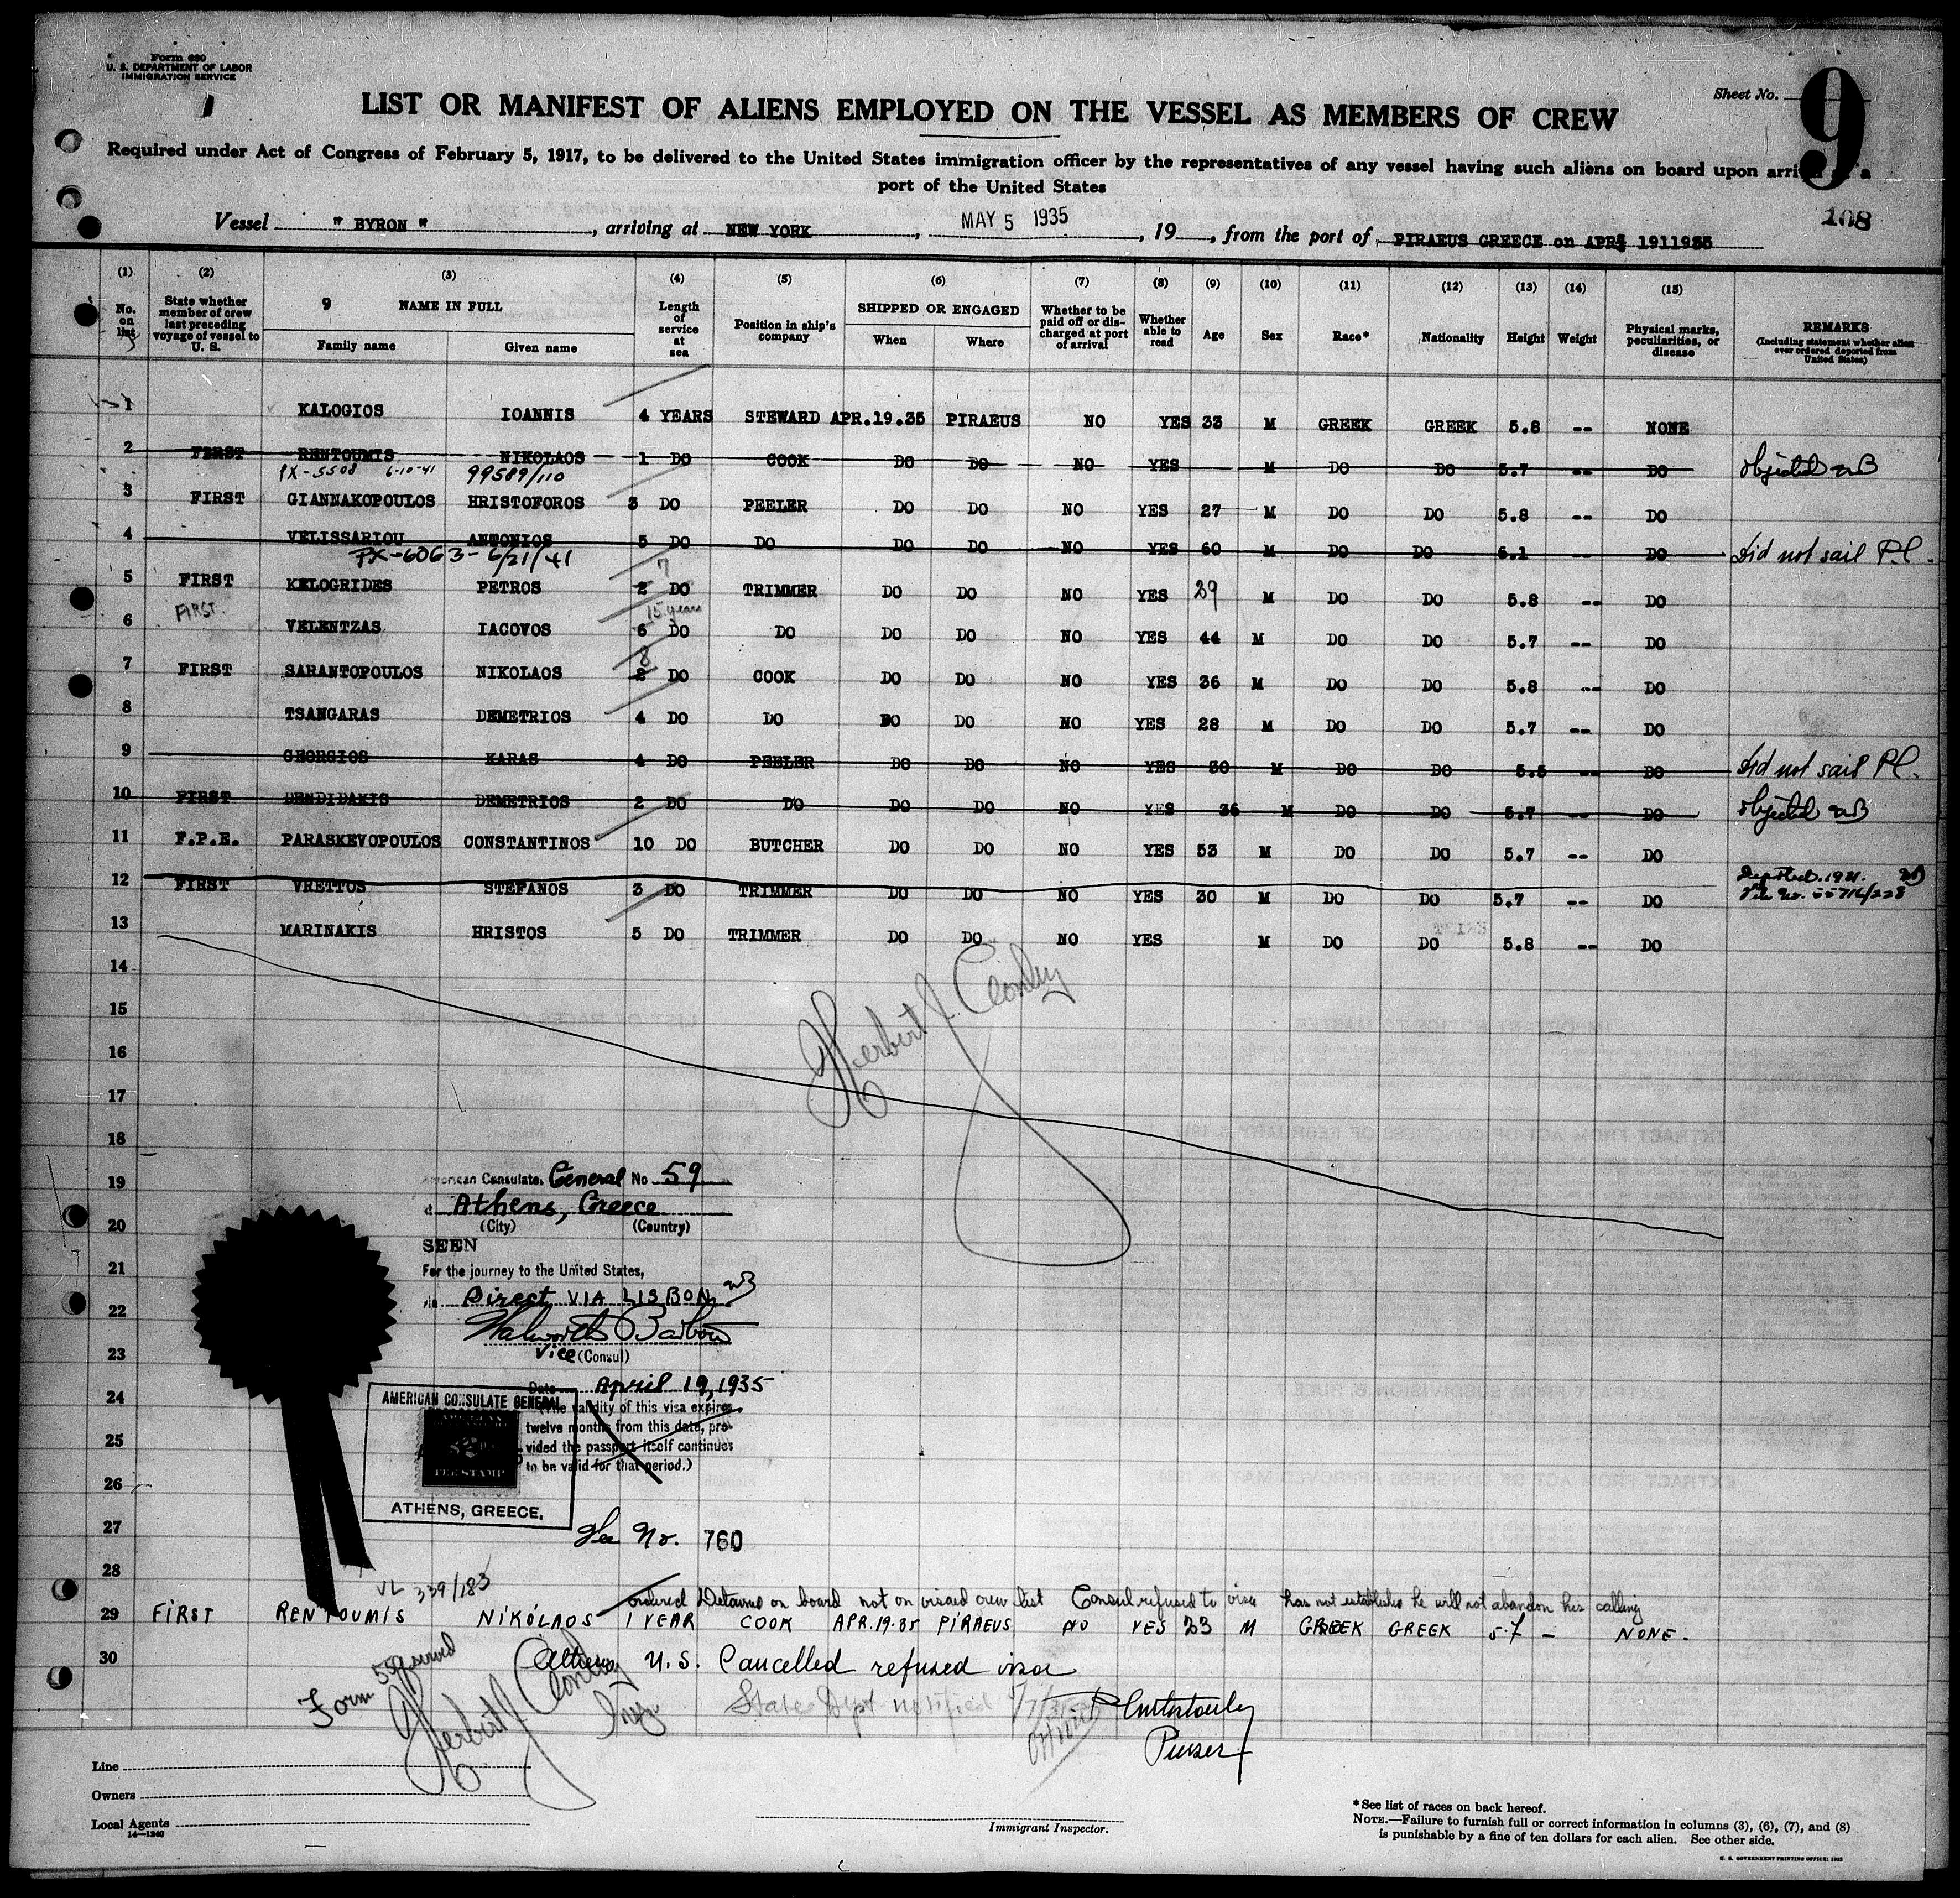 Form 680
U. S. DEPARTMENT OF LABOR
IMMIGRATION SERVICE
Sheet No. 9
LIST OR MANIFEST OF ALIENS EMPLOYED ON THE VESSEL AS MEMBERS OF CREW
Required under Act of Congress of February 5, 1917, to be delivered to the United States immigration officer by the representatives of any vessel having such aliens on board upon arrival at a
port of the United States
108
Vessel " BYRON ", arriving at NEW YORK, MAY 5 1935, 19, from the port of PIRAEUS GREECE on APR
(1) (2) (3) (4) (5) (6) (7) (8) (9) (10) (11) (12) (13) (14) (15)
No. on list
State whether member of crew last preceding voyage of vessel to U. S.
9 NAME IN FULL
Family name Given name
Length of service at sea
Position in ship's company
SHIPPED OR ENGAGED
When Where
Whether to be paid off or discharged at port of arrival
Whether able to read
Age Sex Race* Nationality Height Weight
Physical marks, peculiarities, or disease
REMARKS
(Including statement whether alien ever ordered deported from United States)
1 KALOGIOS IOANNIS 4 YEARS STEWARD APR.19.35 PIRAEUS NO YES 33 M GREEK GREEK 5.8 -- NONE
2 FIRST RENTOUMIS NIKOLAOS 1 DO COOK DO DO NO YES M DO DO 5.7 -- DO objected
PX-5508 6-10-41 99589/110
3 FIRST GIANNAKOPOULOS HRISTOFOROS 3 DO PEELER DO DO NO YES 27 M DO DO 5.8 -- DO
4 VELISSARIOU ANTONIOS 5 DO DO DO DO NO YES 60 M DO DO 6.1 -- DO Did not sail P.C.
PX-6063-6/21/41
7
5 FIRST KELOGRIDES PETROS 2 DO TRIMMER DO DO NO YES 29 M DO DO 5.8 -- DO
FIRST. 15 years
6 VELENTZAS IACOVOS 6 DO DO DO DO NO YES 44 M DO DO 5.7 -- DO
8
7 FIRST SARANTOPOULOS NIKOLAOS 2 DO COOK DO DO NO YES 36 M DO DO 5.8 -- DO
8 TSANGARAS DEMETRIOS 4 DO DO DO DO NO YES 28 M DO DO 5.7 -- DO
9 GEORGIOS KARAS 4 DO PEELER DO DO NO YES 30 M DO DO 5.5 -- DO Did not sail P.C.
10 FIRST DENDIDAKIS DEMETRIOS 2 DO DO DO DO NO YES 36 M DO DO 5.7 -- DO objected
11 F.P.E. PARASKEVOPOULOS CONSTANTINOS 10 DO BUTCHER DO DO NO YES 53 M DO DO 5.7 -- DO
12 FIRST VRETTOS STEFANOS 3 DO TRIMMER DO DO NO YES 30 M DO DO 5.7 -- DO Deported 1921.
File No. 55716/228
13 MARINAKIS HRISTOS 5 DO TRIMMER DO DO NO YES M DO DO 5.8 -- DO
14
15
16
17
18
19
20
21
22
23
24
25
26
27
28
American Consulate General No 59
at Athens, Greece
(City) (Country)
SEEN
For the journey to the United States,
via Direct VIA LISBON
Walworth Barbour
Vice (Consul)
Date April 19, 1935
(The validity of this visa expires
twelve months from this date, pro-
vided the passport itself continues
to be valid for that period.)
AMERICAN CONSULATE GENERAL
FEE STAMP
ATHENS, GREECE.
Fee No. 760
VL 339/183
ordered Detained on board not on visaed crew list Consul refused to visa has not established he will not abandon his calling
29 FIRST RENTOUMIS NIKOLAOS 1 YEAR COOK APR.19.35 PIRAEUS NO YES 23 M GREEK GREEK 5.7 - NONE.
30 Athens U.S. Cancelled refused visa
Form 559 served
State Dept notified
Purser
Line
Owners
Local Agents
14—1240
Immigrant Inspector.
*See list of races on back hereof.
NOTE.—Failure to furnish full or correct information in columns (3), (6), (7), and (8)
is punishable by a fine of ten dollars for each alien. See other side.
U. S. GOVERNMENT PRINTING OFFICE